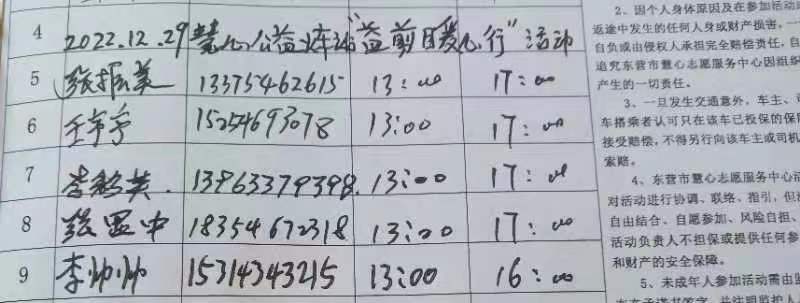 4 2022.12.29慧心公益車站"益剪暖心行"活动
5 张振美 13375462615 13:00 17:00
6 15254693078 13:00 17:00
7 13963379398. 13:00 17:00
8 张显中 18354672318 13:00 17:00
9 李帅帅 15314343215 13:00 16:00
2、因个人身体原因及在参加活动
返途中发生的任何人身或财产损害，一
自负或由侵权人承担完全赔偿责任，自
追究东营市慧心志愿服务中心因组织
产生的一切责任。
3、一旦发生交通意外，车主、
车搭乘者认可只在该车已投保的保
接受赔偿，不得另行向该车主或司机
索赔。
4、东营市慧心志愿服务中心活
对活动进行协调、联络、指引，但
自由结合、自愿参加、风险自担、
活动负责人不担保或提供任何参
和财产的安全保障。
5、未成年人参加活动需由监